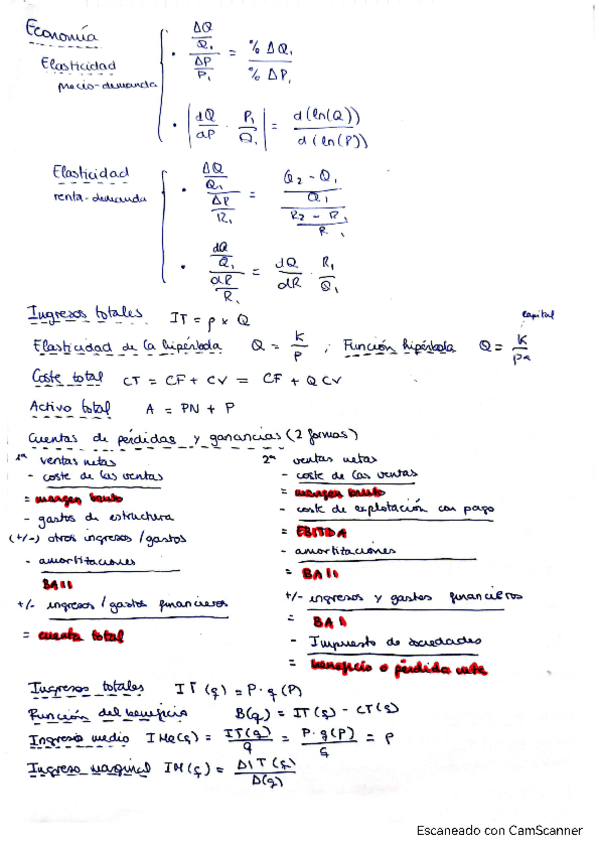 Economía
Elasticidad
precio-demanda
• (ΔQ/Q₁)/(ΔP/P₁) = %ΔQ₁/%ΔP₁
• |dQ/dP · P₁/Q₁| = d(ln(Q))/d(ln(P))
Elasticidad
renta-demanda
• (ΔQ/Q₁)/(ΔR/R₁) = ((Q₂-Q₁)/Q₁)/((R₂-R₁)/R₁)
• (dQ/Q₁)/(dR/R₁) = dQ/dR · R₁/Q₁
Ingresos totales IT = p x Q
capital
Elasticidad de la hipérbola Q = K/P ; Función hipérbola Q = K/pa
Coste total CT = CF + CV = CF + Q CV
Activo total A = PN + P
Cuentas de pérdidas y ganancias (2 formas)
1ª ventas netas
- coste de las ventas
= margen bruto
- gastos de estructura
(+/-) otros ingresos/gastos
- amortitaciones
BAII
+/- ingresos/gastos financieros
= cuenta total
2ª ventas netas
- coste de las ventas
= margen bruto
- coste de explotación con pago
= EBITDA
- amortitaciones
= BAII
+/- ingresos y gastos financieros
= BAI
- Impuesto de sociedades
= beneficio o pérdida neta
Ingresos totales IT(q) = P·q(P)
Función del beneficio B(q) = IT(q) - CT(q)
Ingreso medio IMe(q) = IT(q)/q = P·q(P)/q = P
Ingreso marginal IM(q) = ΔIT(q)/Δ(q)
Escaneado con CamScanner